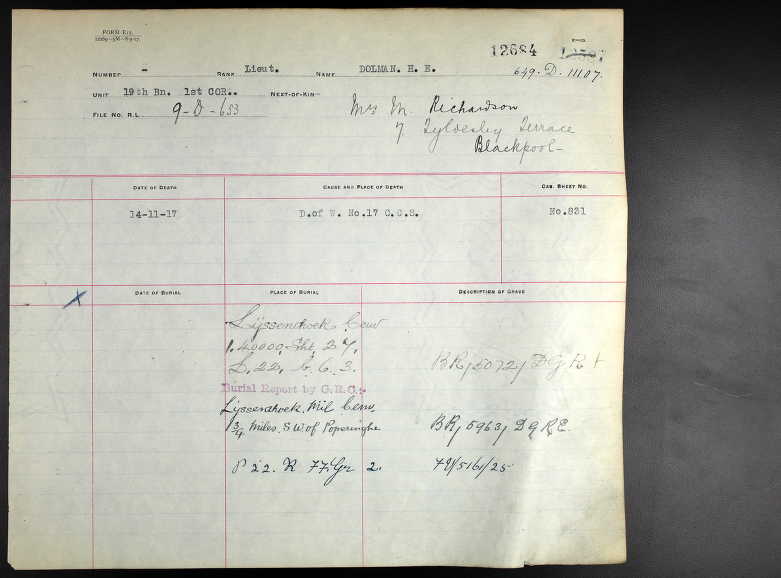 FORM E15.
12684
NUMBER - RANK Lieut. NAME DOLMAN. H. E. 649. D. 11107.
UNIT 19th Bn. 1st COR.. NEXT-OF-KIN- Mrs M. Richardson
FILE NO. R.L. 9-D-653 7 Tyldesley Terrace
Blackpool-
DATE OF DEATH CAUSE AND PLACE OF DEATH CAS. SHEET NO.
14-11-17 D.of W. No.17 C.C.S. No.831
DATE OF BURIAL PLACE OF BURIAL DESCRIPTION OF GRAVE
Lijssenthoek Cem
1.40000. Sht. 27.
L. 22. b. 6. 3.
Burial Report by G.R.C:-
Lijssenthoek. Mil Cem.
1 3/4 Miles. S.W. of Poperinghe
P 22. R 77. Gr 2.